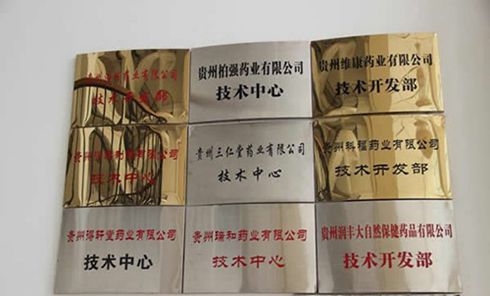 贵州 药业有限公司
技术开发部
贵州柏强药业有限公司
技术中心
贵州维康药业有限公司
技术开发部
贵州 药业有限公司
技术中心
贵州三仁堂药业有限公司
技术中心
贵州科福药业有限公司
技术开发部
贵州得轩堂药业有限公司
技术中心
贵州瑞和药业有限公司
技术中心
贵州润丰大自然保健药品有限公司
技术开发部